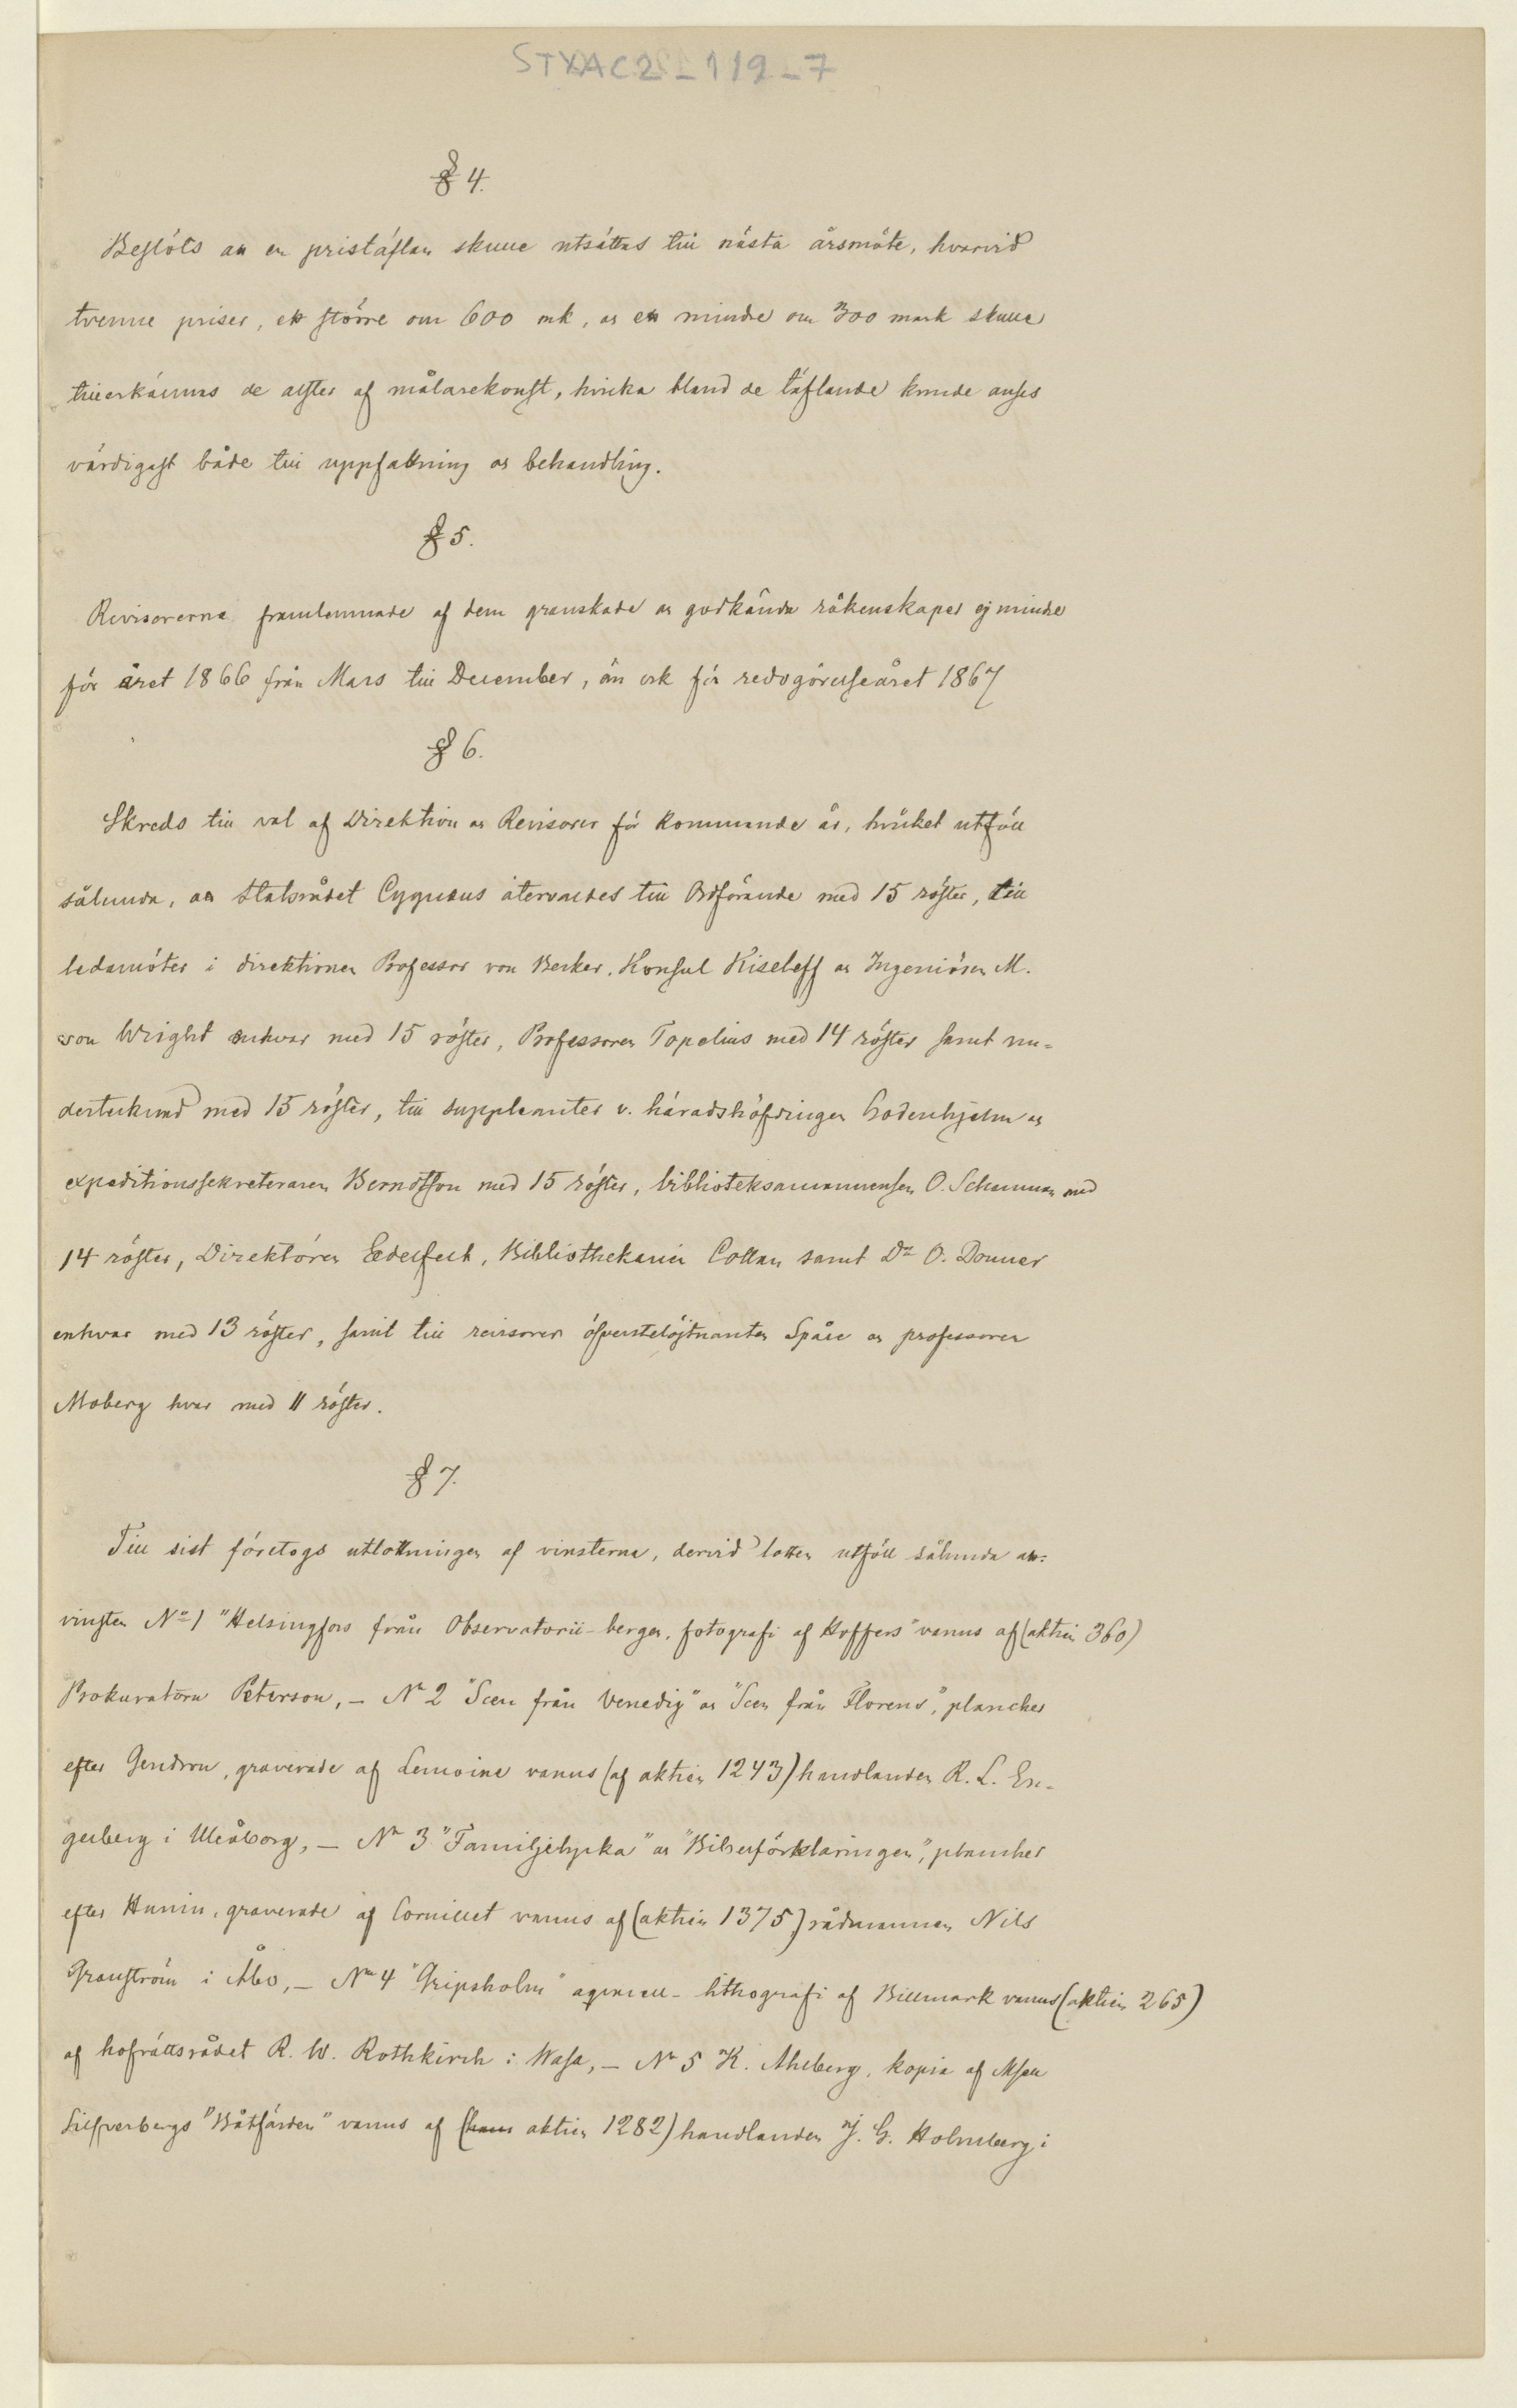 STYAC2_119_7
§ 4.
Beslöts att en pristäflan skulle utsättas till nästa årsmöte, hvarvid
tvenne priser, ett större om 600 mk, och ett mindre om 300 mark skulle
tillerkännas de alster af målarekonst, hvilka bland de täflande kunde anses
värdigast både till uppfattning och behandling.
§ 5.
Revisorerna framlemnade af dem granskade och godkända räkenskaper ej mindre
för året 1866 från Mars till December, än ock för redogörelseåret 1867
§ 6.
Skreds till val af Direktion och Revisorer för kommande år, hvilket utföll
sålunda, att Statsrådet Cygnæus återvaldes till Ordförande med 15 röster, till
ledamöter i direktionen Professor von Becker, Konsul Kiseleff och Ingeniören M.
von Wright enhvar med 15 röster, Professoren Topelius med 14 röster samt un-
dertecknad med 15 röster, till suppleanter v. häradshöfdingen Godenhjelm och
expeditionssekreteraren Berndtson med 15 röster, biblioteksamanuensen O. Schauman med
14 röster, Direktören Edelfelt, Bibliothekarien Collan samt Dr O. Donner
enhvar med 13 röster, samt till revisorer öfverstelöjtnanten Spåre och professoren
Moberg hvar med 11 röster.
§ 7.
Till sist företogs utlottningen af vinsterna, dervid lotten utföll sålunda att:
vinsten No 1 "Helsingfors från Observatorii-bergen, fotografi af Hoffers" vanns af (aktien 360)
Prokuratorn Peterson, – No 2 "Scen från Venedig" och "Scen från Florens", plancher
efter Gendron, graverade af Lemoine vanns (af aktien 1243) handlanden R. L. En-
gelberg i Uleåborg, – No 3 "Familjelycka" och "Bibelförklaringen", plancher
efter Hunin, graverade af Cornillet vanns af (aktien 1375) rådmannen Nils
Granström i Åbo, – No 4 "Gripsholm" aquarell-lithografi af Billmark vanns (aktien 265)
af hofrättsrådet R. W. Rothkirch i Wasa, – No 5 K. Ahlberg, kopia af Msell
Silfverbergs "Båtfärden" vanns af (hans aktien 1282) handlanden J. G. Holmberg i